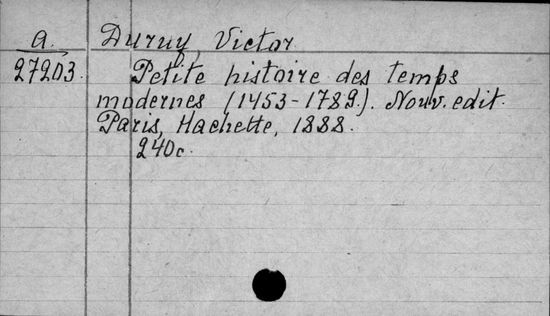 a. Duruy, Victor
27203. Petite histoire des temps
modernes (1453-1789.). Nouv. edit.
Paris, Hachette, 1888.
240c.